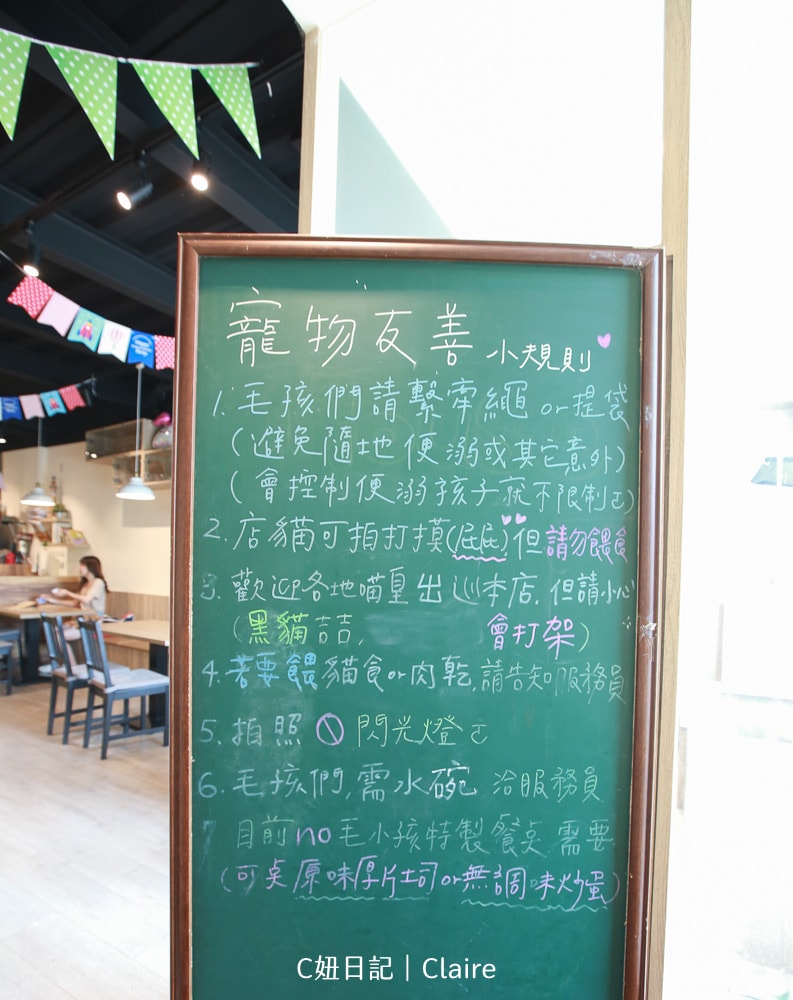 寵物友善 小規則
1. 毛孩們請繫牽繩 or 提袋
(避免隨地便溺或其它意外)
(會控制便溺孩子就不限制ㄛ)
2. 店貓可拍打摸(屁屁)但請勿餵食
3. 歡迎各地喵皇出巡本店, 但請小心
(黑貓吉吉, 會打架)
4. 若要餵貓食 or 肉乾, 請告知服務員
5. 拍照 閃光燈ㄛ
6. 毛孩們, 需水碗 洽服務員
7 目前 no 毛小孩特製餐點 需要
(可点原味厚片土司 or 無調味炒蛋)
C妞日記｜Claire